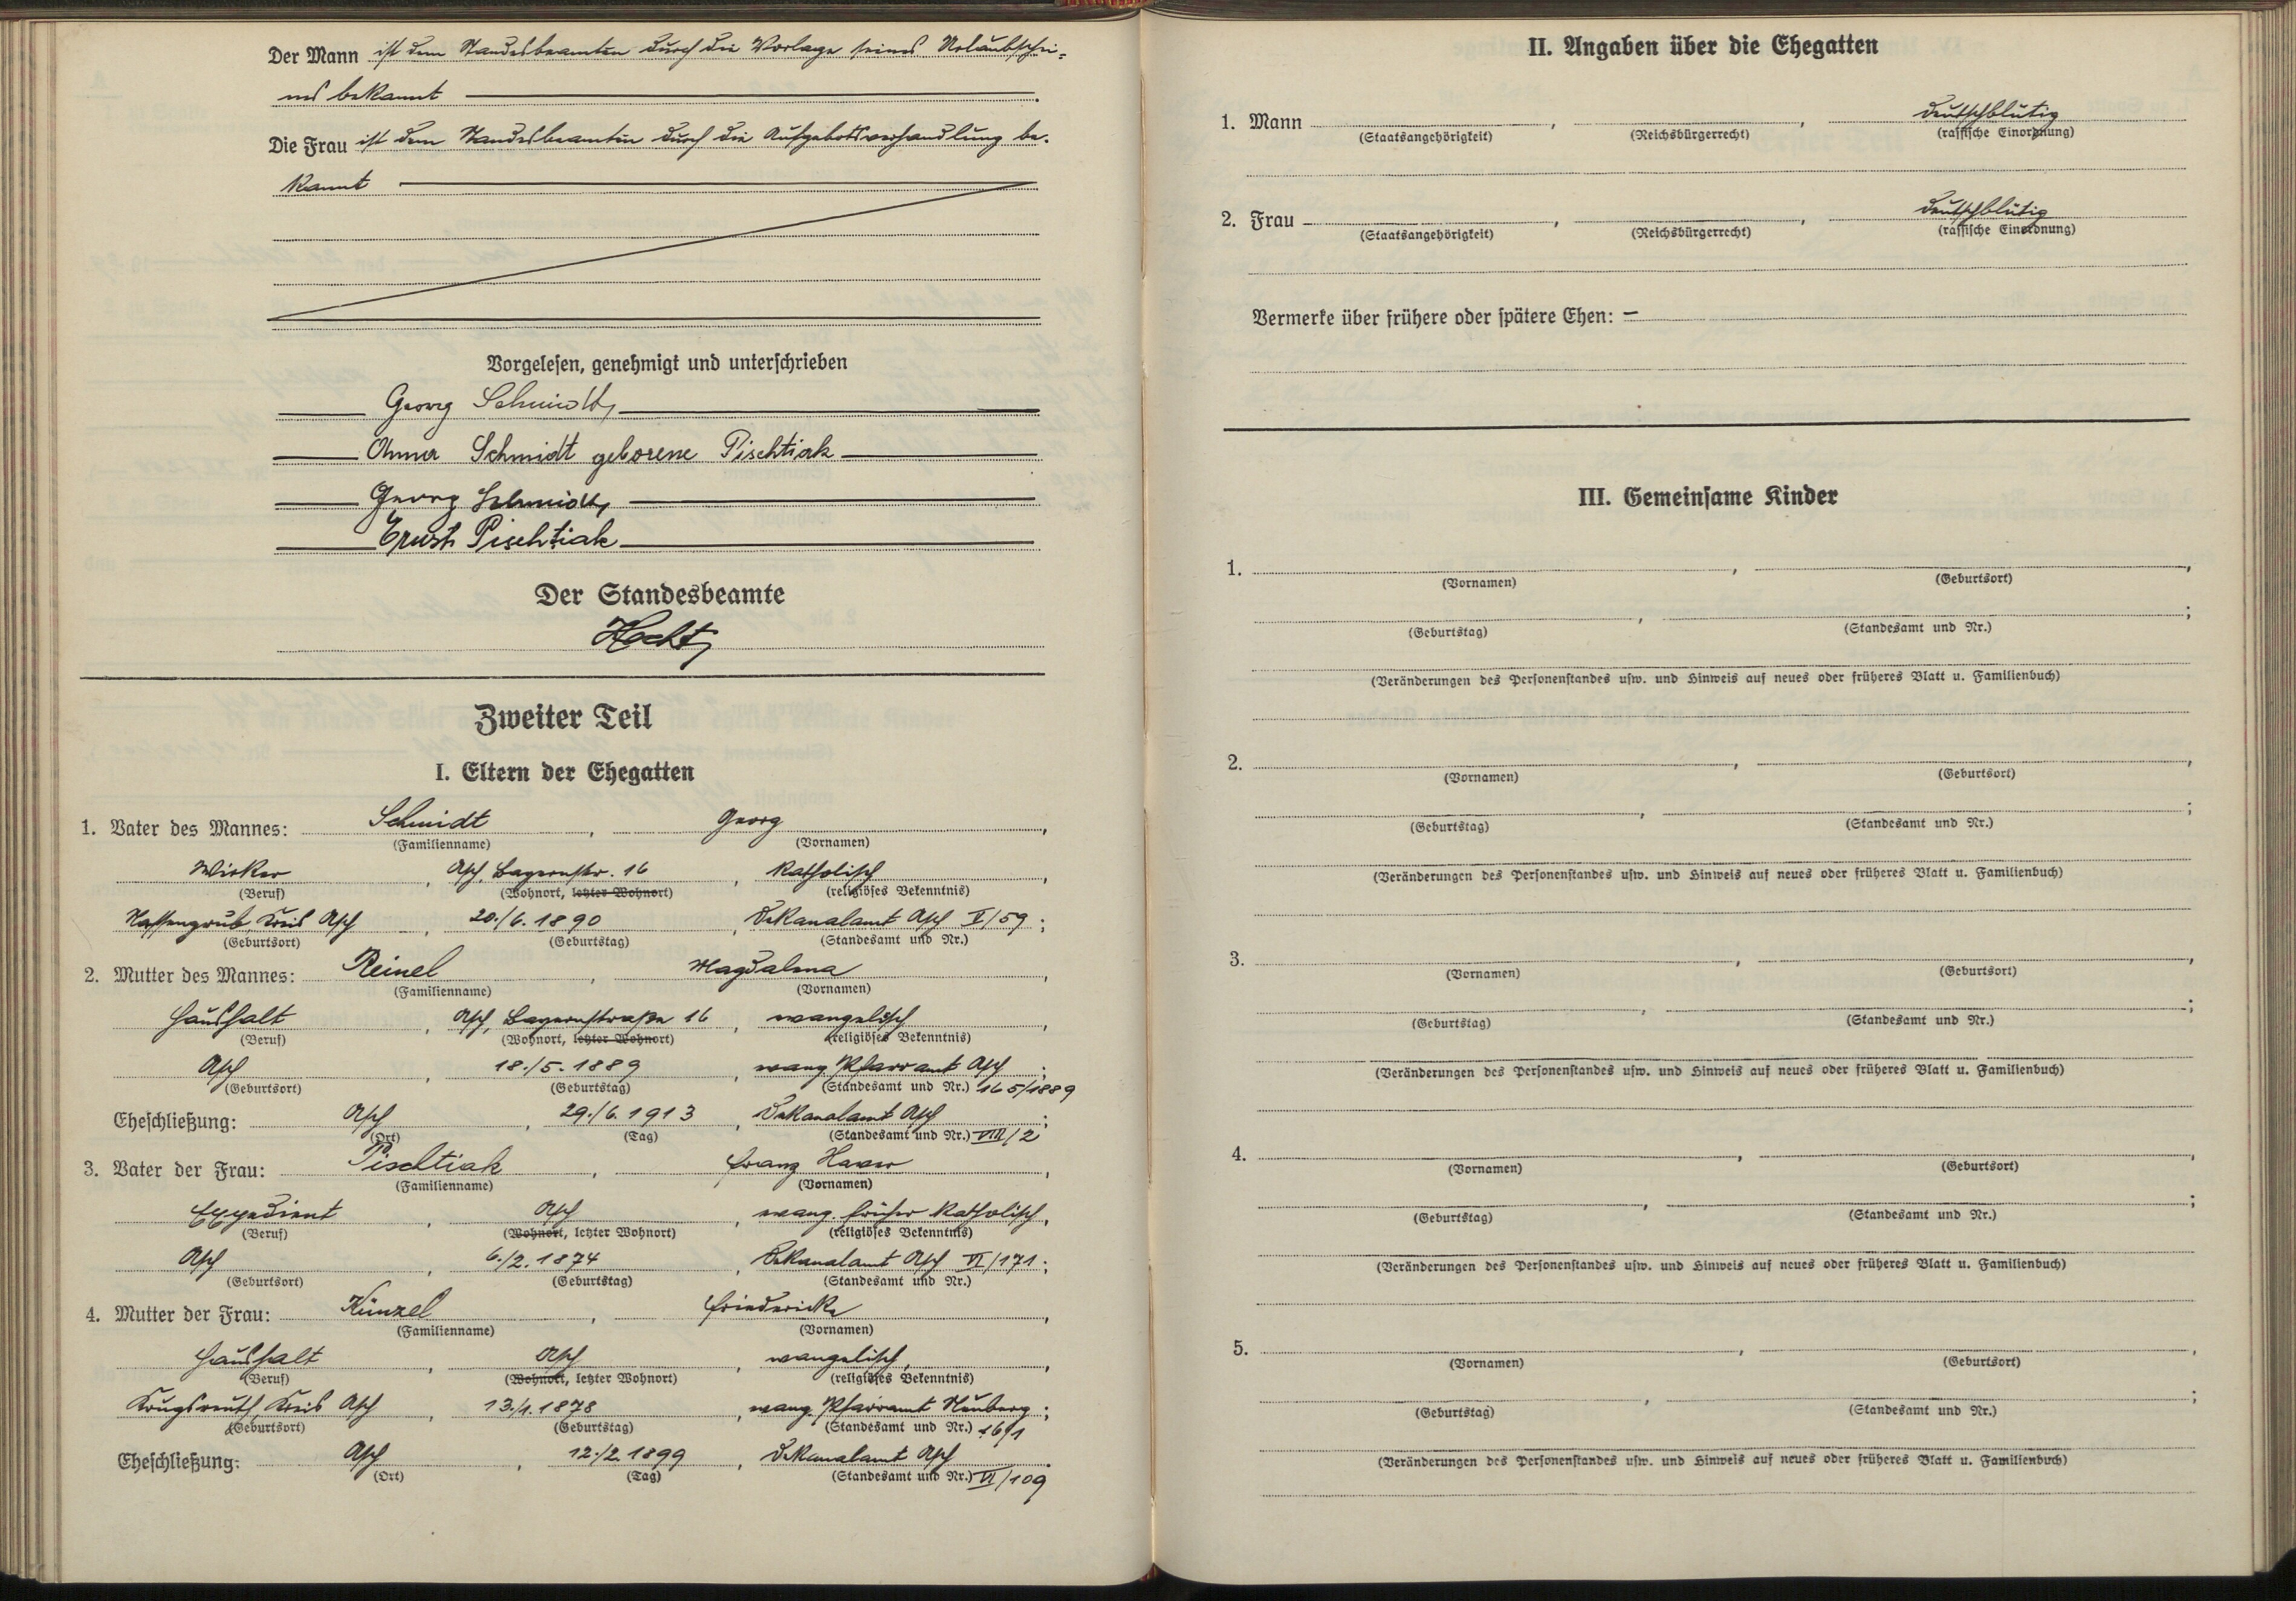 Der Mann ist dem Standesbeamten durch die Vorlage seines Urlaubschei-
nes bekannt
Die Frau ist dem Standesbeamten durch die Aufgebotsverhandlung be-
kannt
Vorgelesen, genehmigt und unterschrieben
Georg Schmidt
Anna Schmidt geborene Pischtiak
Georg Schmidt
Ernst Pischtiak
Der Standesbeamte
Hecht
Zweiter Teil
I. Eltern der Ehegatten
1. Vater des Mannes: Schmidt, Georg,
(Familienname) (Vornamen)
Wirker, Asch, Bayernstr. 16, katholisch,
(Beruf) (Wohnort, letzter Wohnort) (religiöses Bekenntnis)
Nassengrub, Kreis Asch, 20./6. 1890, Dekanalamt Asch V/59;
(Geburtsort) (Geburtstag) (Standesamt und Nr.)
2. Mutter des Mannes: Reinel, Magdalena,
(Familienname) (Vornamen)
Haushalt, Asch, Bayernstraße 16, evangelisch,
(Beruf) (Wohnort, letzter Wohnort) (religiöses Bekenntnis)
Asch, 18./5. 1889, evang. Pfarramt Asch;
(Geburtsort) (Geburtstag) (Standesamt und Nr.) 165/1889
Eheschließung: Asch, 29./6. 1913, Dekanalamt Asch;
(Ort) (Tag) (Standesamt und Nr.) VIII/2
3. Vater der Frau: Pischtiak, Franz Xaver,
(Familienname) (Vornamen)
Expedient, Asch, evang. früher katholisch,
(Beruf) (Wohnort, letzter Wohnort) (religiöses Bekenntnis)
Asch, 6./2. 1874, Dekanalamt Asch VI/171;
(Geburtsort) (Geburtstag) (Standesamt und Nr.)
4. Mutter der Frau: Künzel, Friedericke,
(Familienname) (Vornamen)
Haushalt, Asch, evangelisch,
(Beruf) (Wohnort, letzter Wohnort) (religiöses Bekenntnis)
Krugsreuth, Kreis Asch, 13./1. 1878, evang. Pfarramt Neuberg;
(Geburtsort) (Geburtstag) (Standesamt und Nr.)
Eheschließung: Asch, 12./2. 1899, Dekanalamt Asch.
(Ort) (Tag) (Standesamt und Nr.) VI/109
II. Angaben über die Ehegatten
1. Mann, , deutschblütig
(Staatsangehörigkeit) (Reichsbürgerrecht) (rassische Einordnung)
2. Frau, , deutschblütig
(Staatsangehörigkeit) (Reichsbürgerrecht) (rassische Einordnung)
Vermerke über frühere oder spätere Ehen: –
III. Gemeinsame Kinder
1. , ,
(Vornamen) (Geburtsort)
, ;
(Geburtstag) (Standesamt und Nr.)
(Veränderungen des Personenstandes usw. und Hinweis auf neues oder früheres Blatt u. Familienbuch)
2. , ,
(Vornamen) (Geburtsort)
, ;
(Geburtstag) (Standesamt und Nr.)
(Veränderungen des Personenstandes usw. und Hinweis auf neues oder früheres Blatt u. Familienbuch)
3. , ,
(Vornamen) (Geburtsort)
, ;
(Geburtstag) (Standesamt und Nr.)
(Veränderungen des Personenstandes usw. und Hinweis auf neues oder früheres Blatt u. Familienbuch)
4. , ,
(Vornamen) (Geburtsort)
, ;
(Geburtstag) (Standesamt und Nr.)
(Veränderungen des Personenstandes usw. und Hinweis auf neues oder früheres Blatt u. Familienbuch)
5. , ,
(Vornamen) (Geburtsort)
, ;
(Geburtstag) (Standesamt und Nr.)
(Veränderungen des Personenstandes usw. und Hinweis auf neues oder früheres Blatt u. Familienbuch)